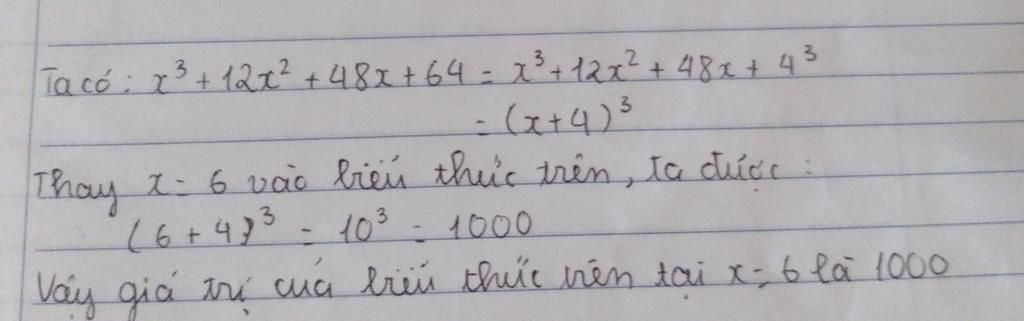 Ta có: x³ + 12x² + 48x + 64 = x³ + 12x² + 48x + 4³
= (x+4)³
Thay x = 6 vào biểu thức trên, ta được:
(6 + 4)³ = 10³ = 1000
Vậy giá trị của biểu thức trên tại x = 6 là 1000